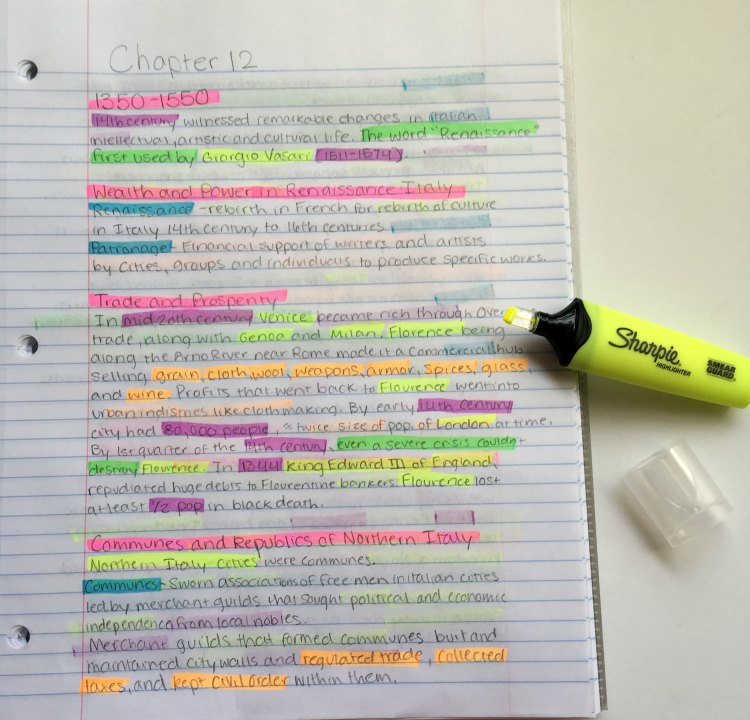 Chapter 12
1350-1550
14th century witnessed remarkable changes in Italian
intellectual, artistic and cultural life. The word "Renaissance"
first used by Giorgio Vasari (1511-1574).
Wealth and Power in Renaissance Italy
Renaissance - rebirth in French for rebirth of culture
in Italy 14th century to 16th centuries.
Patronage - Financial support of writers and artists
by cities, groups and individuals to produce specific works.
Trade and Prosperity
In mid 20th century Venice became rich through over
trade, along with Genoa and Milan, Florence being
along the Arno River near Rome made it a commercial hub
selling grain, cloth, wool, weapons, armor, spices, glass,
and wine. Profits that went back to Flourence went into
urban indismes like clothmaking. By early 14th century
city had 80,000 people, ≈ twice size of pop. of London at time.
By 1st quarter of the 14th century, even a severe crisis couldn't
destroy Flourence. In 1344 King Edward III of England,
repudiated huge debts to Flourentine bankers. Flourence lost
atleast 1/2 pop in black death.
Communes and Republics of Northern Italy
Northern Italy cities were communes.
Communes - Sworn associations of free men in italian cities
led by merchant guilds that sought political and economic
independence from local nobles.
Merchant guilds that formed communes built and
maintained city walls and regulated trade, collected
taxes, and kept civil order within them.
Sharpie
HIGHLIGHTER
SMEAR
GUARD